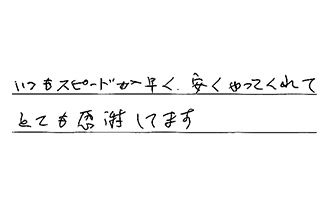 いつもスピードが早く、安くやってくれて
とても感謝してます